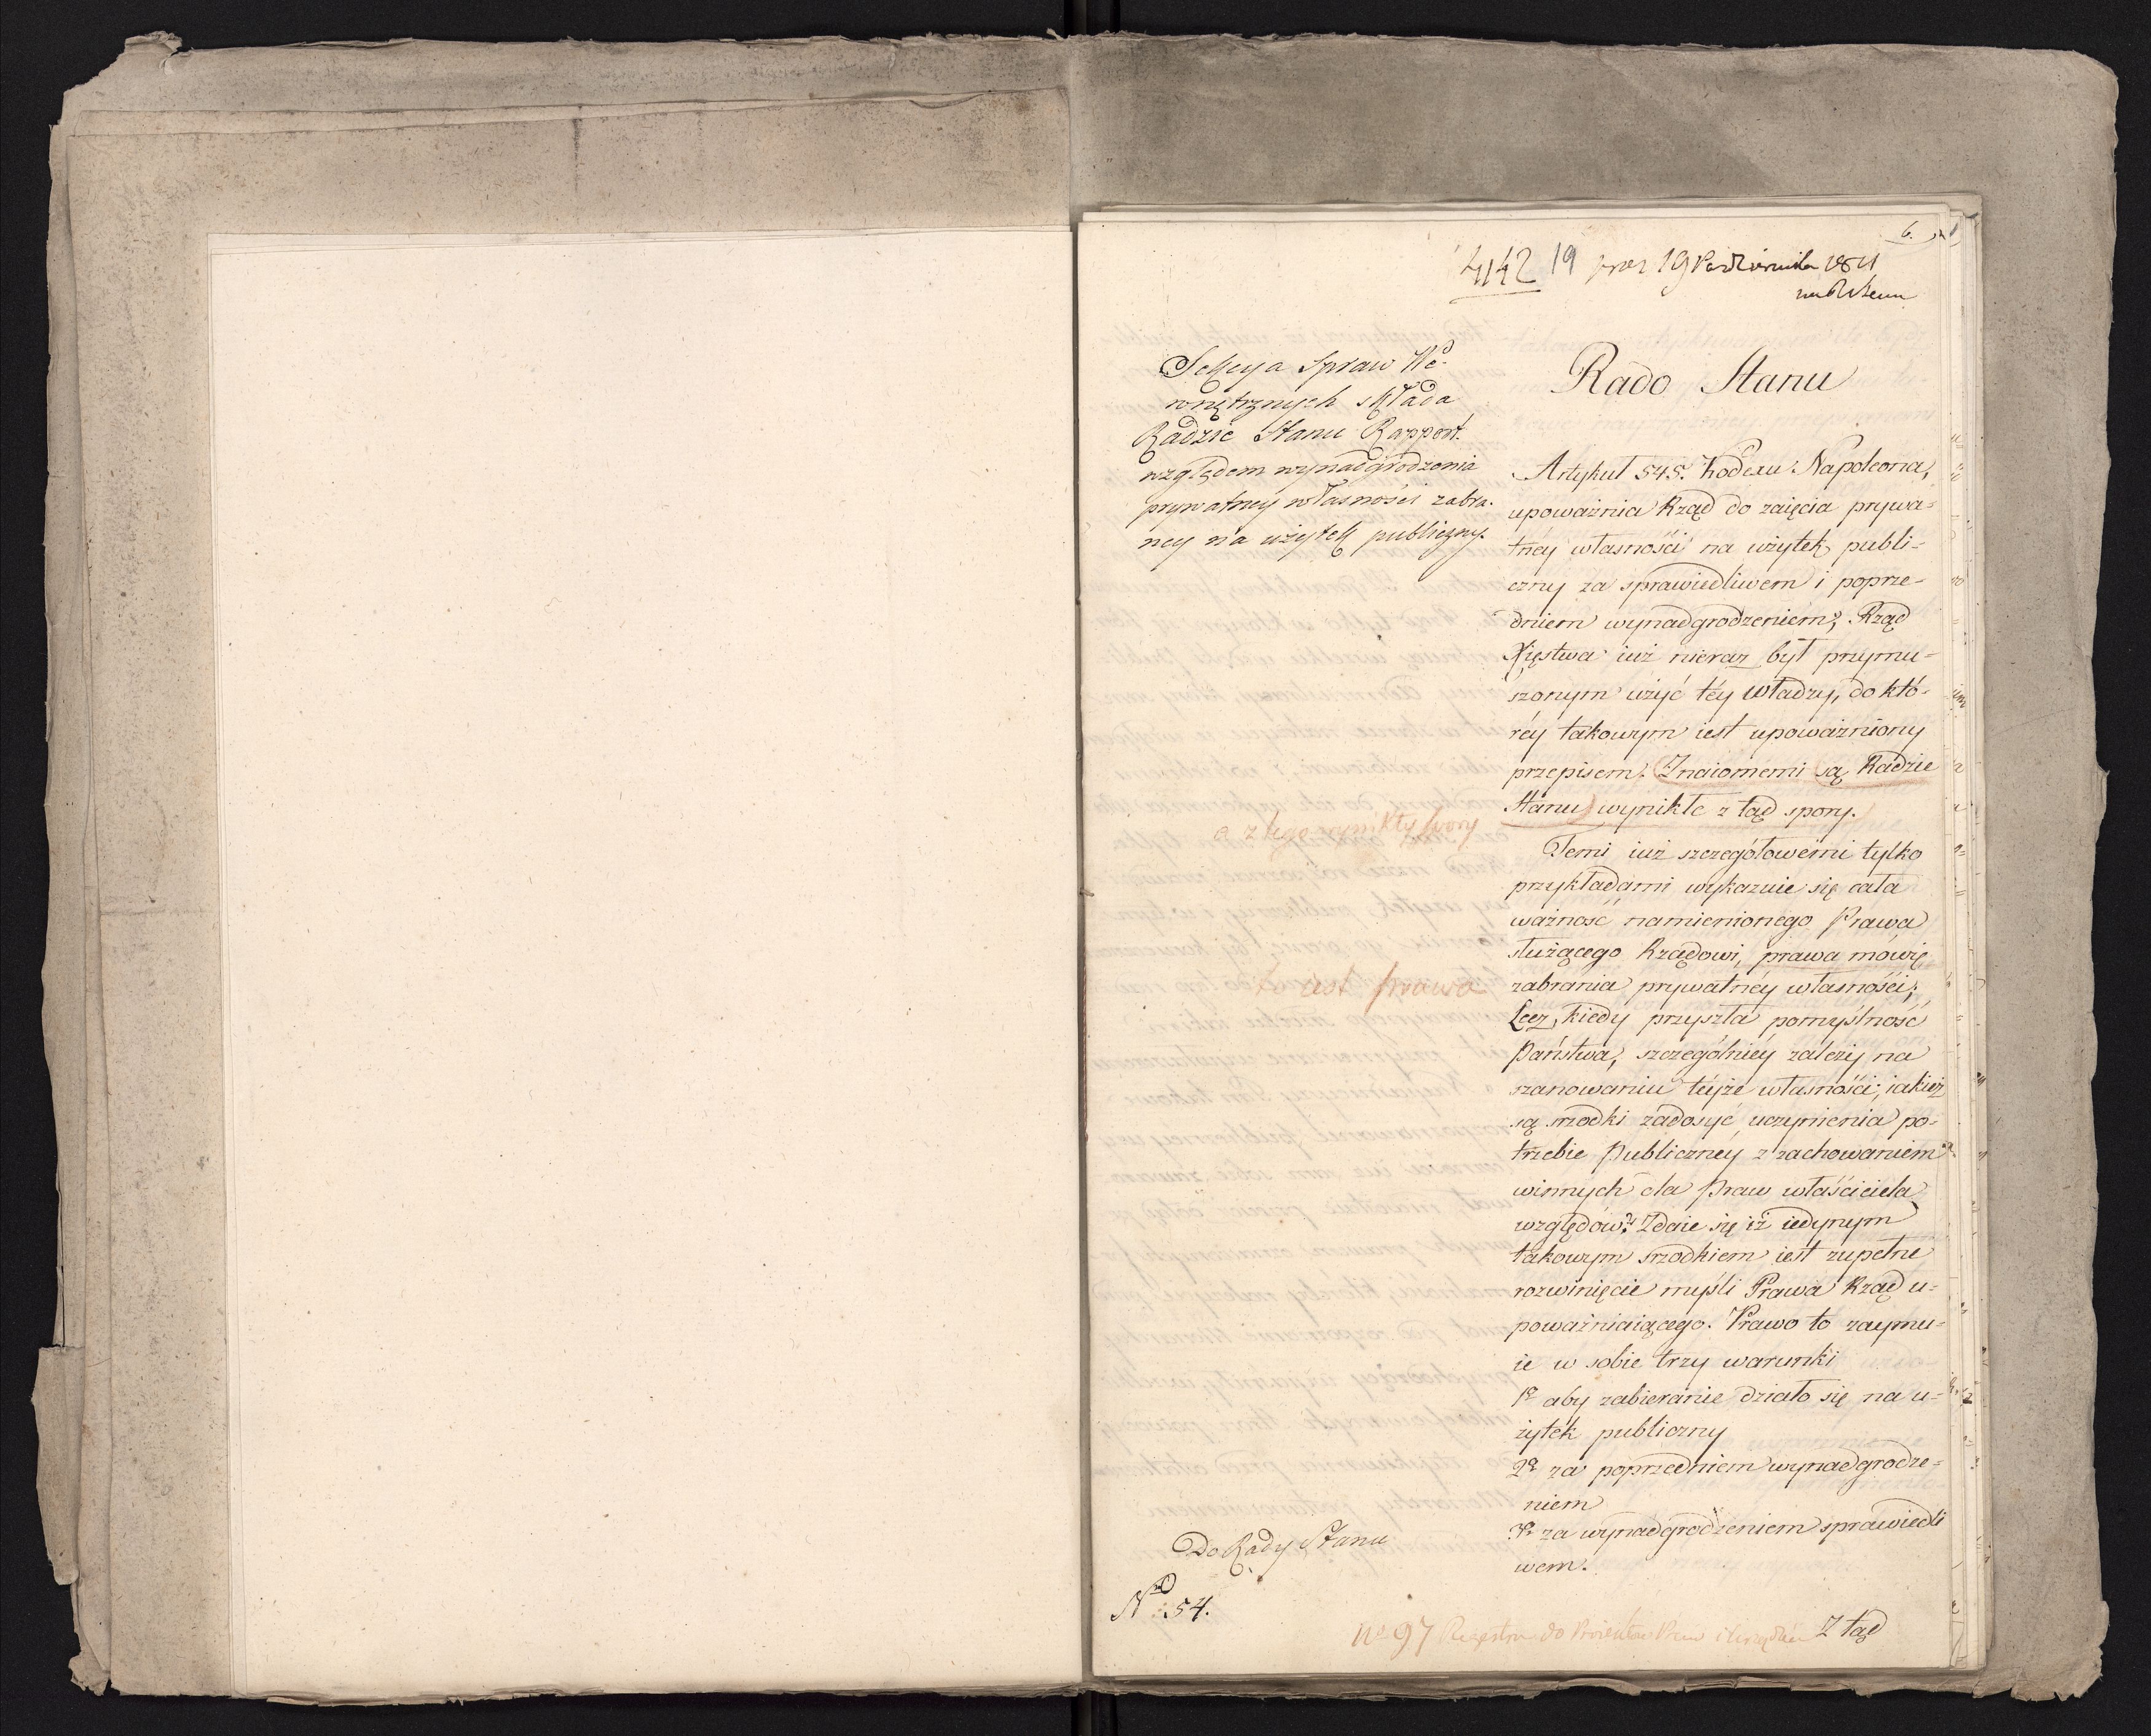 6.
4142 19 prez 19 Października 1811
Sekcya Spraw We-
wnętrznych składa
Radzie Stanu Rapport.
względem wynadgrodzenia
prywatney własności zabra-
ney na użytek publiczny.
Rado Stanu
Artykuł 545. Kodexu Napoleona,
upoważnia Rząd do zaięcia prywa-
tnéy własności na użytek publi-
czny za sprawiedliwem i poprze-
dniem wynadgrodzeniem; Rząd
Xięstwa iuż nieraz był przymu-
szonym użyć téy Władzy, do któ-
réy takowym iest upoważniony
przepisem. Znaiomemi są Radzie
Stanu wynikłe z tąd spory.
a z tego wynikły spory
Temi iuż szczegółowemi tylko
przykładami wykazuie się cała
ważność namienionego Prawa
służącego Rządowi, prawa mówię
zabrania prywatnéy własności;
to iest prawa
Lecz, kiedy przyszła pomyślność
Państwa, szczególniéy zależy na
szanowaniu téyże własności; iakież
są srzodki zadosyć uczynienia po-
trzebie Publicznéy z zachowaniem
winnych dla Praw właściciela
względów? Zdaie się iż iedynym
takowym srzodkiem iest zupełne
rozwinięcie myśli Prawa Rząd u-
poważniaiącego. Prawo to zaymu-
ie w sobie trzy warunki
1º aby zabieranie działo się na u-
żytek publiczny
2º za poprzedniem wynadgrodze-
niem
3º za wynadgrodzeniem sprawiedli
wem.
Do Rady Stanu
Nº 54.
Nº 97 Regestru do Proiektów Praw i Urządzeń
Z tąd